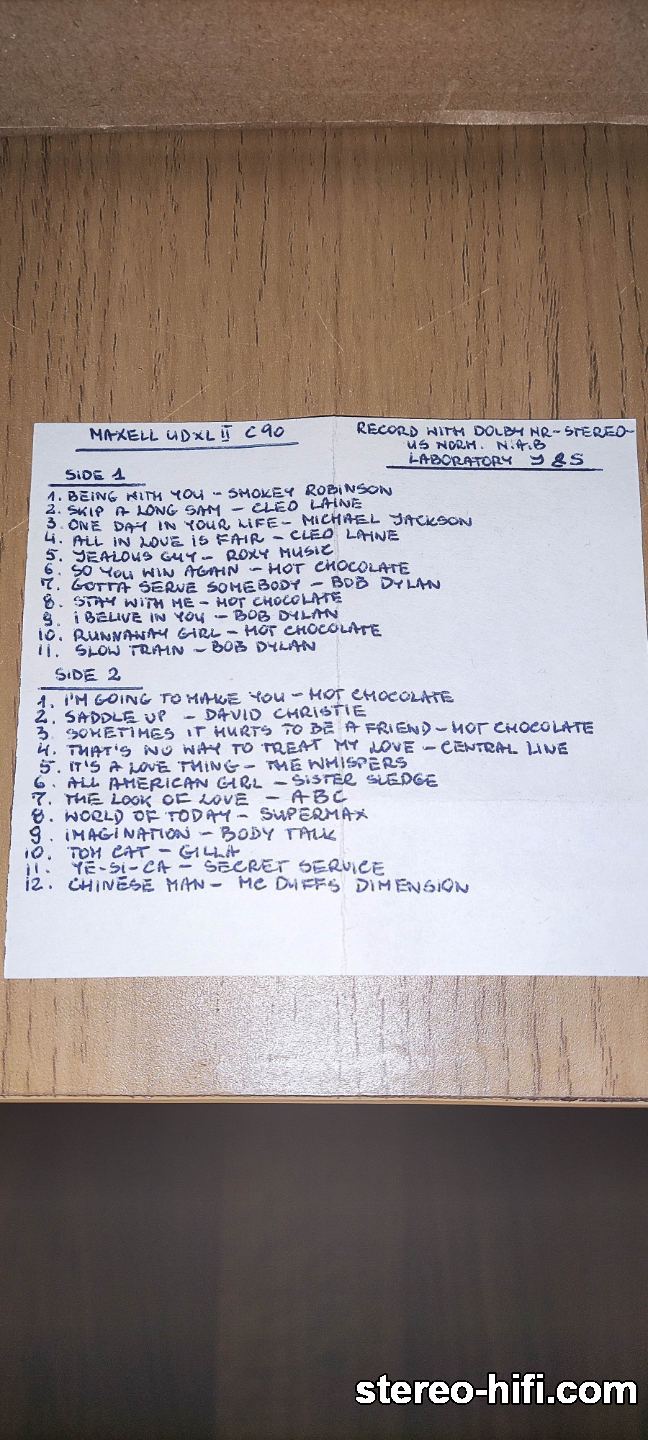 MAXELL UDXL II C90
RECORD WITH DOLBY NR-STEREO-
US NORM. N.A.B
LABORATORY J&S
SIDE 1
1. BEING WITH YOU - SMOKEY ROBINSON
2. SKIP A LONG SAM - CLEO LAINE
3. ONE DAY IN YOUR LIFE - MICHAEL JACKSON
4. ALL IN LOVE IS FAIR - CLEO LAINE
5. JEALOUS GUY - ROXY MUSIC
6. SO YOU WIN AGAIN - HOT CHOCOLATE
7. GOTTA SERVE SOMEBODY - BOB DYLAN
8. STAY WITH ME - HOT CHOCOLATE
9. I BELIVE IN YOU - BOB DYLAN
10. RUNNAWAY GIRL - HOT CHOCOLATE
11. SLOW TRAIN - BOB DYLAN
SIDE 2
1. I'M GOING TO MAKE YOU - HOT CHOCOLATE
2. SADDLE UP - DAVID CHRISTIE
3. SOMETIMES IT HURTS TO BE A FRIEND - HOT CHOCOLATE
4. THAT'S NO WAY TO TREAT MY LOVE - CENTRAL LINE
5. IT'S A LOVE THING - THE WHISPERS
6. ALL AMERICAN GIRL - SISTER SLEDGE
7. THE LOOK OF LOVE - ABC
8. WORLD OF TODAY - SUPERMAX
9. IMAGINATION - BODY TALK
10. TOM CAT - GILLA
11. YE-SI-CA - SECRET SERVICE
12. CHINESE MAN - MC DUFFS DIMENSION
stereo-hifi.com